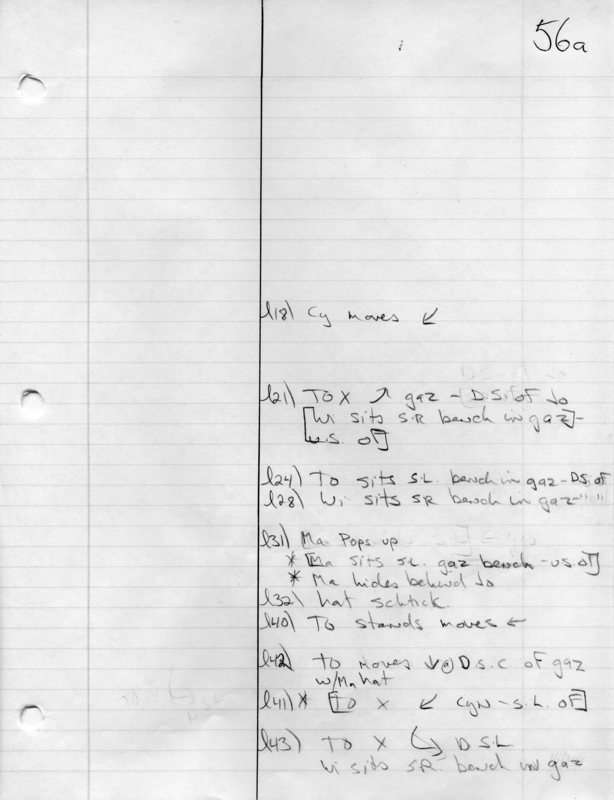 56a
l18) Cy moves ↙
l21) TO X ↗ gaz - D.S. of Jo
[Wi sits S.R bench in gaz]-
u.s. of]
l24) To sits S.L. bench in gaz - DS. of
l28) Wi sits SR bench in gaz - " "
l31) Ma Pops up
* [Ma sits S.L. gaz bench - u.s. of]
* Ma hides behind Jo
l32) hat schtick
l40) TO stands moves ←
l42) to moves ↓ @ D.S.C of gaz
w/Ma hat
l41) * [TO X ↙ Cyn - S.L. of]
l43) TO X D S.L
Wi sits S.R. bench in gaz